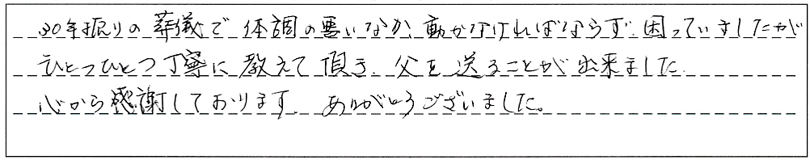 30年振りの葬儀で体調の悪いなか、動かなければならず、困っていましたが
ひとつひとつ丁寧に教えて頂き、父を送ることが出来ました。
心から感謝しております。ありがとうございました。